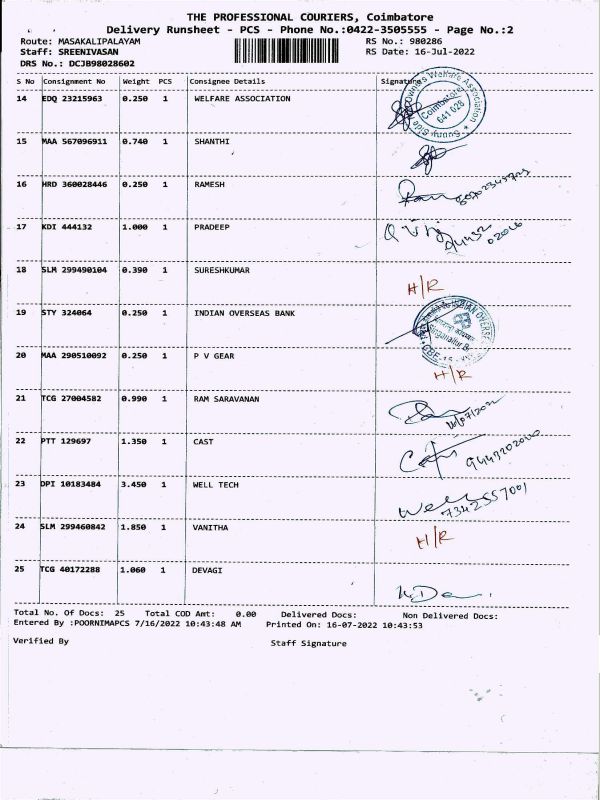 THE PROFESSIONAL COURIERS, Coimbatore
Delivery Runsheet - PCS - Phone No.:0422-3505555 - Page No.:2
Route: MASAKALIPALAYAM RS No.: 980286
Staff: SREENIVASAN RS Date: 16-Jul-2022
DRS No.: DCJB98028602
S No Consignment No Weight PCS Consignee Details Signature
14 EDQ 23215963 0.250 1 WELFARE ASSOCIATION
Owners Welfare Association
Coimbatore
641 028
Sunny Side
15 MAA 567096911 0.740 1 SHANTHI
16 HRD 360028446 0.250 1 RAMESH
17 KDI 444132 1.000 1 PRADEEP
18 SLM 299490104 0.390 1 SURESHKUMAR H/R
19 STY 324064 0.250 1 INDIAN OVERSEAS BANK
20 MAA 290510092 0.250 1 P V GEAR H/R
21 TCG 27004582 0.990 1 RAM SARAVANAN
16/07/2022
22 PTT 129697 1.350 1 CAST
23 DPI 10183484 3.450 1 WELL TECH Well
7342557001
24 SLM 299460842 1.850 1 VANITHA H/R
25 TCG 40172288 1.060 1 DEVAGI
Total No. Of Docs: 25 Total COD Amt: 0.00 Delivered Docs: Non Delivered Docs:
Entered By :POORNIMAPCS 7/16/2022 10:43:48 AM Printed On: 16-07-2022 10:43:53
Verified By Staff Signature